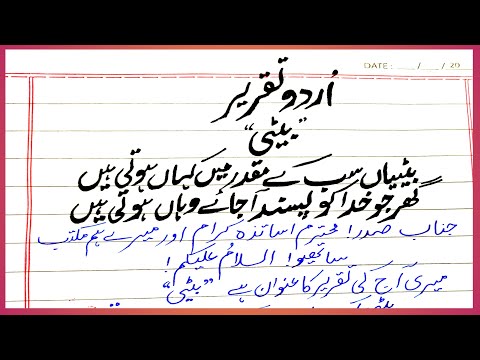 DATE: ___/___/20
اُردو تقریر
"بیٹی"
بیٹیاں سب کے مقدر میں کہاں ہوتی ہیں
گھر جو خدا کو پسند آجائے وہاں ہوتی ہیں
جناب صدر! محترم اساتذہ کرام اور میرے ہم مکتب
ساتھیو! السلامُ علیکم!
میری آج کی تقریر کا عنوان ہے "بیٹی"